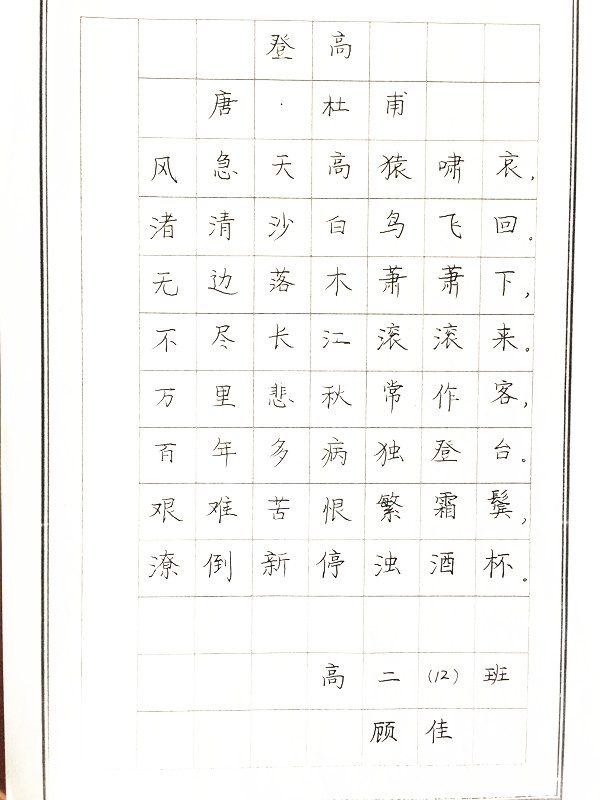 登高
唐·杜甫
风急天高猿啸哀，
渚清沙白鸟飞回。
无边落木萧萧下，
不尽长江滚滚来。
万里悲秋常作客，
百年多病独登台。
艰难苦恨繁霜鬓，
潦倒新停浊酒杯。
高二(12)班
顾佳